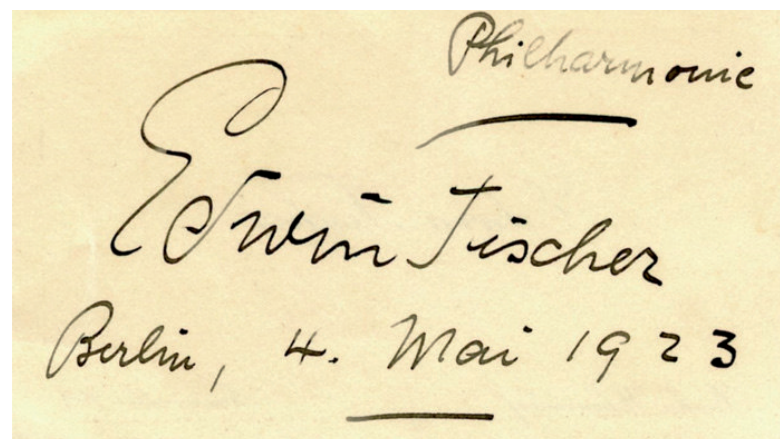 Philharmonie
Edwin Fischer
Berlin, 4. Mai 1923